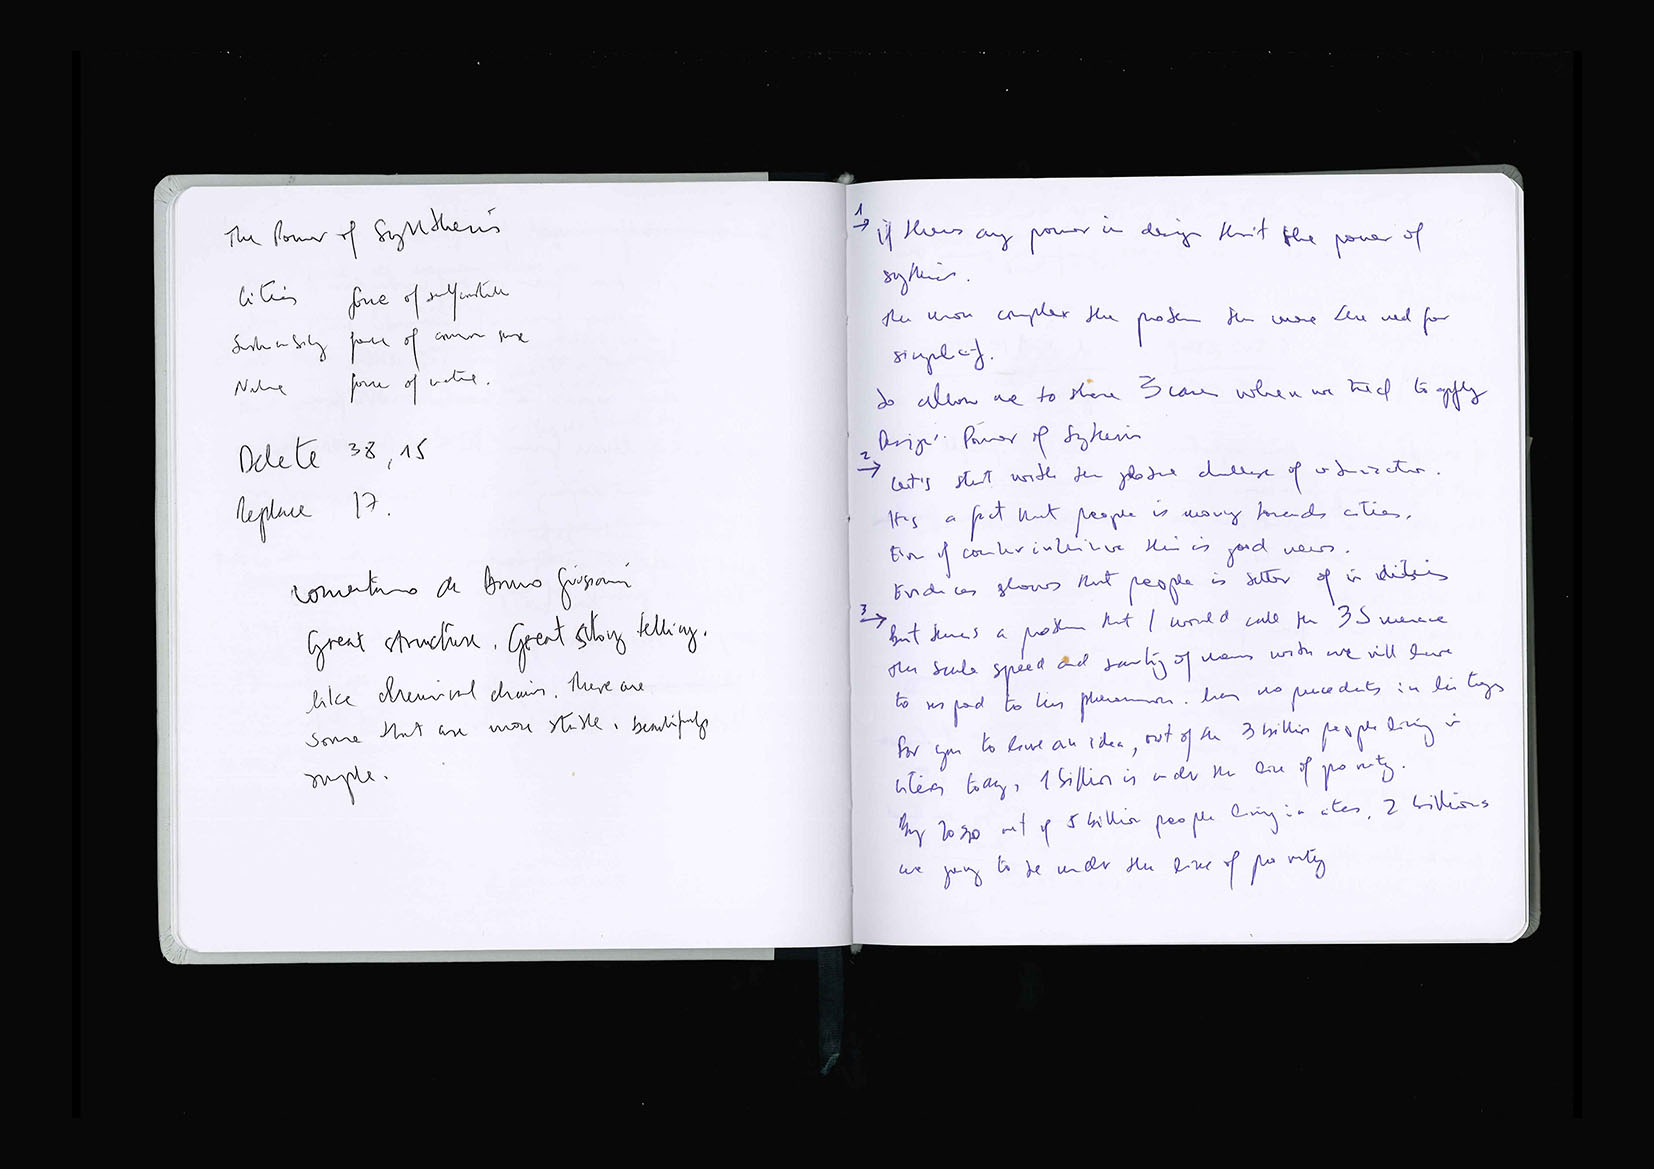 The Power of Synthesis
Cities force of self construction
Sustainability force of common sense
Nature force of nature.
Delete 38, 15
Replace 17.
comentarios de Bruno Giussani
Great structure. Great story telling.
like chemical chains. There are
some that are more stable, beautifully
simple.
1
→ if theres any power in design that's the power of
sythesis.
the more complex the problem the more the need for
simplicity.
So allow me to share 3 cases where we tried to apply
Design's Power of Sythesis
2
→ Let's start with the global challenge of urbanization.
It's a fact that people is moving towards cities.
Even if counterintuitive this is good news.
Evidences shows that people is better of in cities
3
→ But theres a problem that I would call the 3S menace
the scale speed and scarcity of means with we will have
to respond to this phenomenon. has no precedents in history
for you to have an idea, out of the 3 billion people living in
cities today, 1 billion is under the line of poverty.
By 2030 out of 5 billion people living in cities, 2 billions
are going to be under the line of poverty